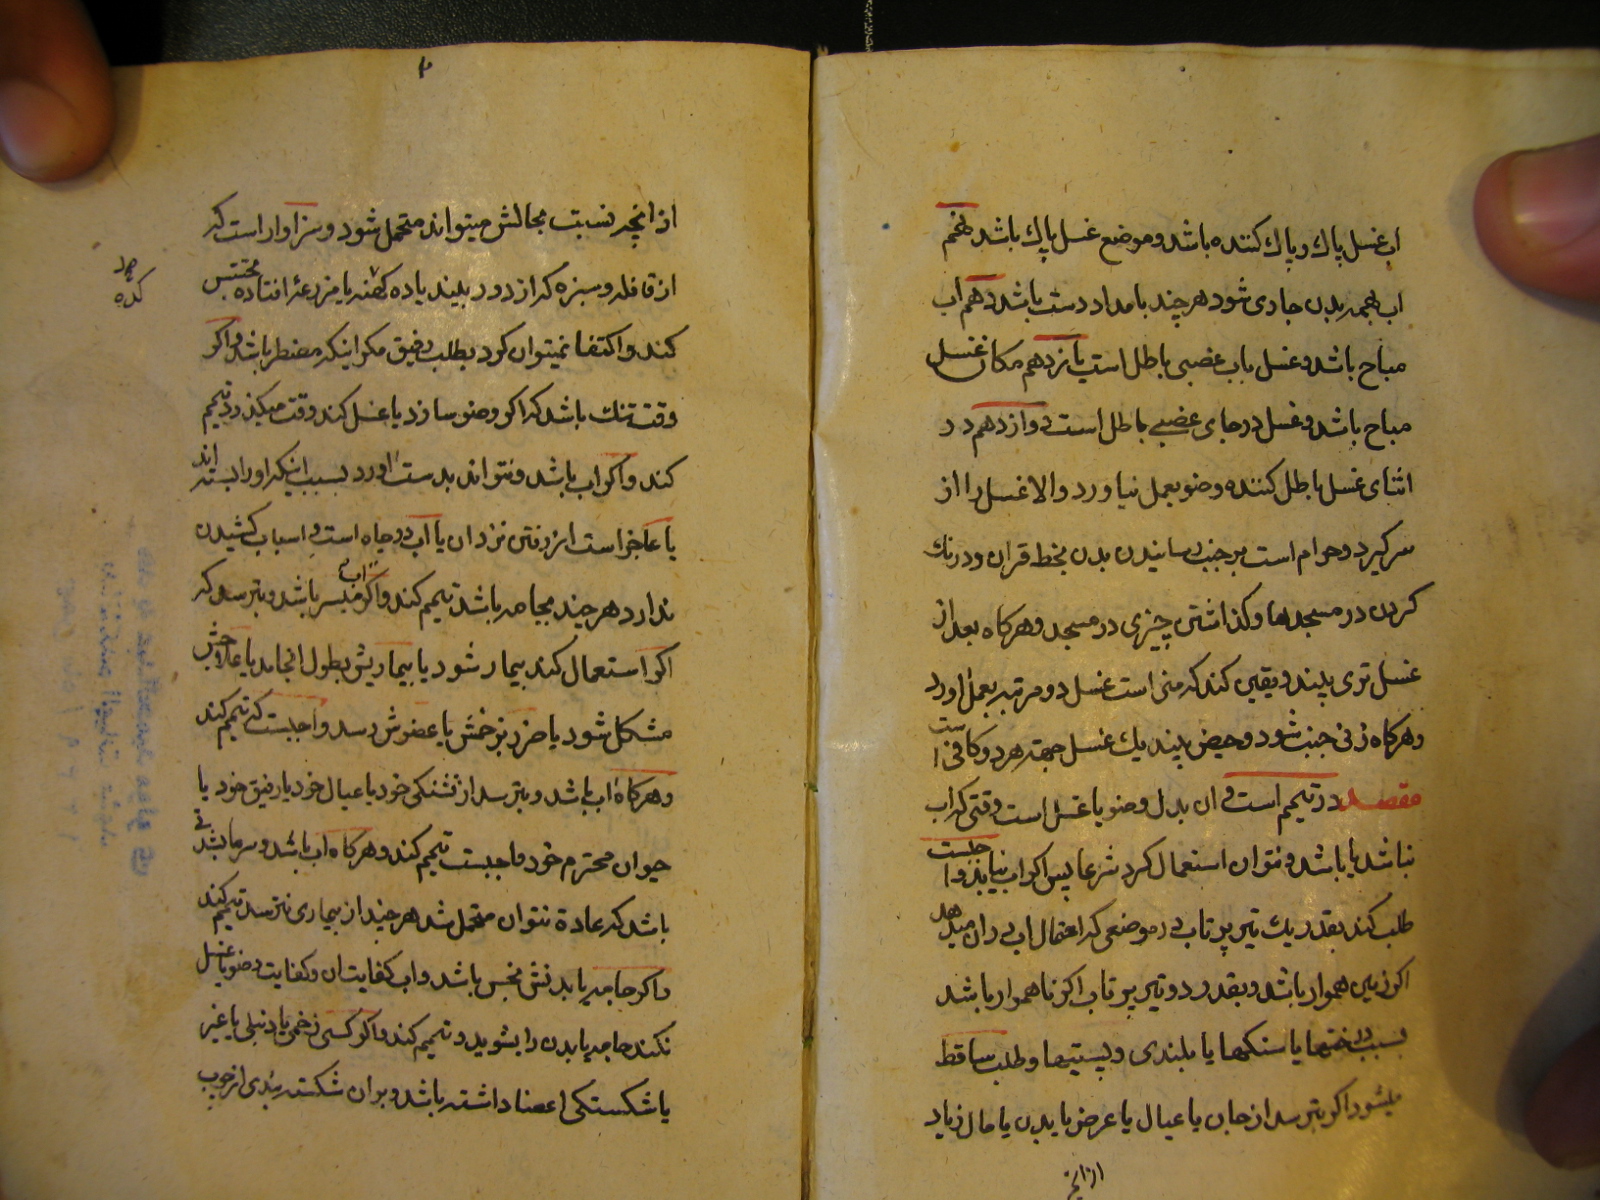 اب غسل پاك و پاك كننده باشد و موضع غسل پاك باشد نهم
اب بهمه بدن جاری شود هر چند بامداد دست باشد دهم اب
مباح باشد و غسل باب غصبی باطل است یازدهم مكان غسل
مباح باشد و غسل در جای غصبی باطل است دوازدهم در
اثنای غسل باطل كننده وضو بعمل نیاورد والا غسل را از
سر گیرد و حرام است بر جنب رسانیدن بدن بخط قران و درنك
كردن در مسجدها و گذاشتن چیزی در مسجد و هر گاه بعد از
غسل تری بیند و یقین كند كه منی است غسل دو مرتبه بعمل اورد
و هر گاه زنی جنب شود و حیض بیند یك غسل جهته هر دو كافی است
مقصد در تیمم است و ان بدل وضو یا غسل است وقتی كه اب
نباشد یا باشد و نتوان استعمال كرد شرعا پس اگر اب نیابد واجبست
طلب كند بقدر یك تیر پرتاب در موضعی كه احتمال اب در ان میدهد
اگر زمین هموار باشد و بقدر دو تیر پرتاب اگر ناهموار باشد
بسبب درختها یا سنگها یا بلندی و پستیها و طلب ساقط
میشود اگر بترسد از جان یا عیال یا عرض یا بدن یا مال زیاد
از انچه
۲
از انچه نسبت بحالش میتواند متحمل شود و سزاوار است كه
از قافله و سبزه كه از دور ببیند یا ده كهنه یا مزرعهٔ افتاده تجسس
كند و اكتفا نمیتوان كرد بطلب رفیق مگر اینكه مضطر باشد و اگر
وقت تنك باشد كه اگر وضو سازد یا غسل كند وقت میگذرد تیمم
كند و اگر اب باشد و نتواند بدست اورد بسبب اینكه او را بسته اند
یا عاجز است از رفتن نزد ان یا اب در چاه است و اسباب كشیدن
ندارد هر چند بجامه باشد تیمم كند و اگر اب میسر باشد و بترسد كه
اگر استعمال كند بیمار شود یا بیماریش بطول انجامد یا علاجش
مشكل شود یا ضرر بزخمش یا عضوش رسد واجبست كه تیمم كند
و هر گاه اب باشد و بترسد از تشنگی خود یا عیال خود یا رفیق خود یا
حیوان محترم خود واجبست تیمم كند و هر گاه اب باشد و سرما بقدری
باشد كه عادة نتوان متحمل شد هر چند از بیماری نترسد تیمم كند
و اگر جامه یا بدنش نجس باشد و اب كفایت ان و كفایت وضو یا غسل
نكند جامه یا بدن را بشوید و تیمم كند و اگر كسی زخمی یا دنبلی یا غیر
یا شكستگی اعضا داشته باشد و بر ان شكسته بندی از چوب